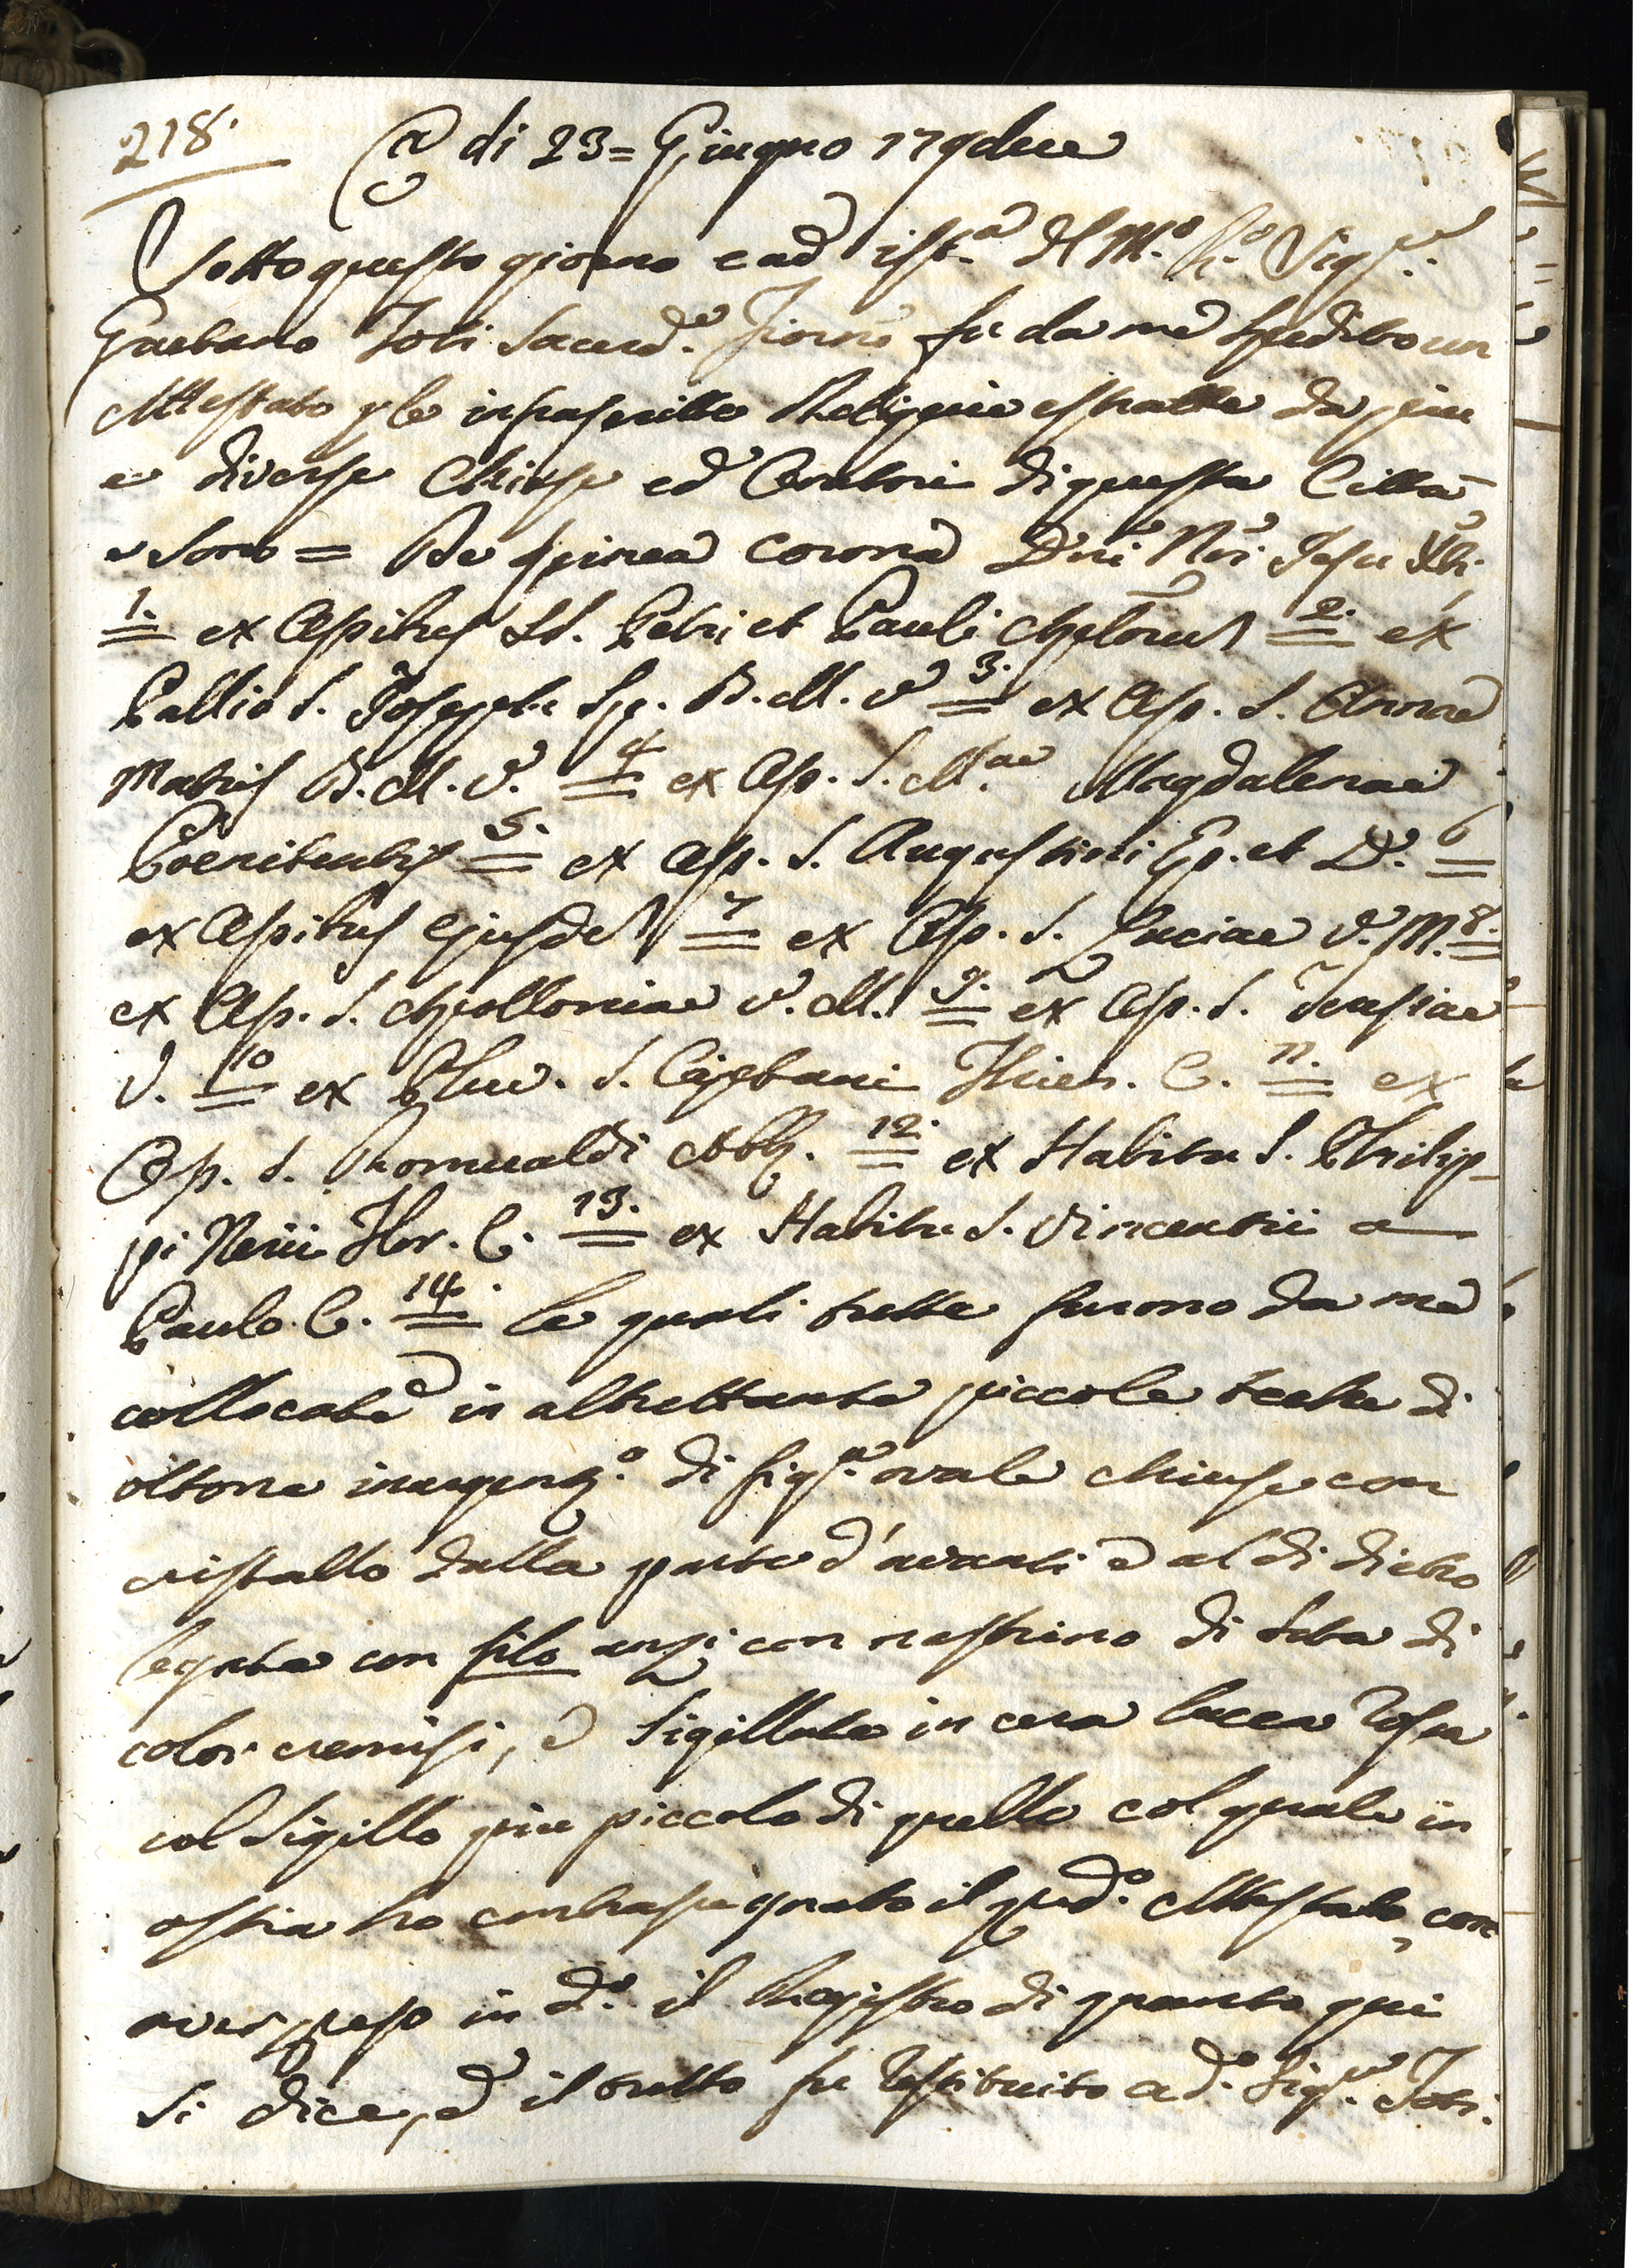 218.
A di 23 = Giugno 179due
Sotto questo giorno e ad ist.a del M.o R.o Sig.r
Gaetano Joti Sacerd.e fu da me spedito un
Attestato p le infrascritte Reliquie estratte da piu
e diverse Chiese ed Oratori di questa Città
e sono = De spinea corona Dni Nri Jesu Xti
1. ex Ossibus SS. Petri et Pauli Aplorum 2. ex
Pallio S. Joseph Sp. B. M. V. 3. ex Oss. S. Annae
Matris B. M. V. 4 ex Oss. S. M.ae Magdalenae
Poenitentis 5. ex Oss. S. Augustini Ep. et D. 6
ex Ossibus ejusdem 7 ex Oss. S. Luciae V. M. 8.
ex Oss. S. Apolloniae V. M. 9. ex Oss. S. Teresiae
V. 10 ex S. Cajetani Thien. C. 11. ex
Oss. S. Romualdi Abb. 12. ex Habitu S. Philip-
pi Nerii Flor. C. 13. ex Habitu S. Vincentii a
Paulo C. 14. le quali tutte furono da me
collocate in altrettante piccole teche di
ottone inargen.o di fig.a ovale chiuse con
cristallo dalla parte d'avanti e al di dietro
legate con filo anzi con nastrino di seta di
color cremisi, e sigillate in cera lacca rossa
col Sigillo piu piccolo di quello col quale in
ostia ho contrasegnato il pred.o Attestato, con
aver preso in d.o il Registro di quanto qui
si dice, e il tutto fu restituito a d.o Sig.r Joti.